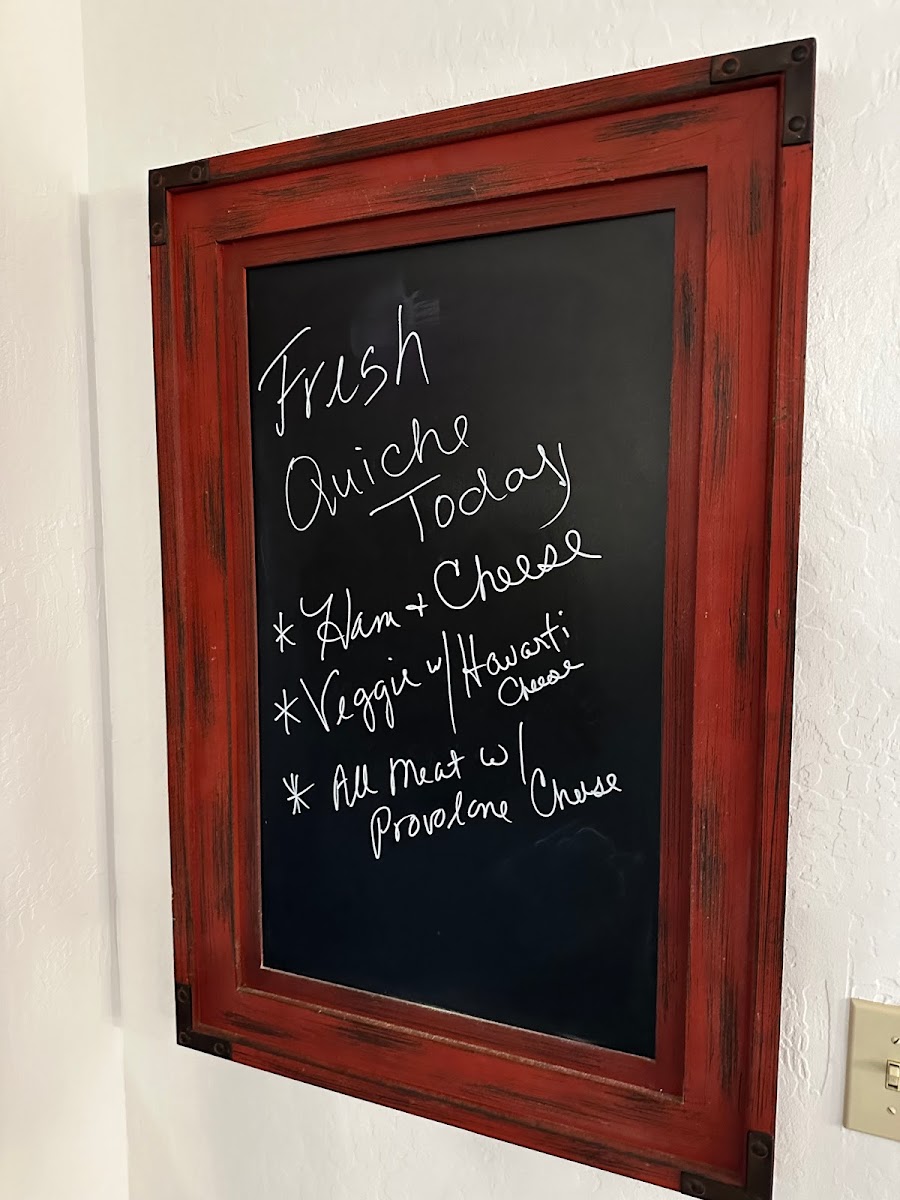 Fresh
Quiche
Today
* Ham + Cheese
* Veggie w/ Havarti
Cheese
* All Meat w/
Provolone Cheese